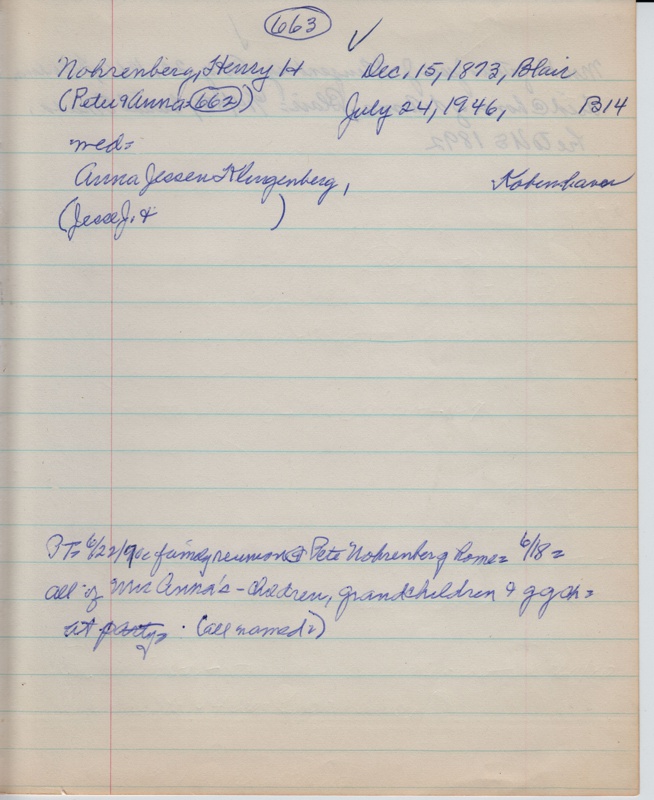 663 ✓
Nohrenberg, Henry H Dec. 15, 1873, Blair
(Peter & Anna = 662) July 24, 1946, B14
med=
Anna Jessen Klingenberg, Kobenhavn
(Jesse J. & )
PT= 6/22/ family reunion @ Pete Nohrenberg home = 6/18 =
all of Mrs Anna's - children, grandchildren & ggch =
at party = (all named =)